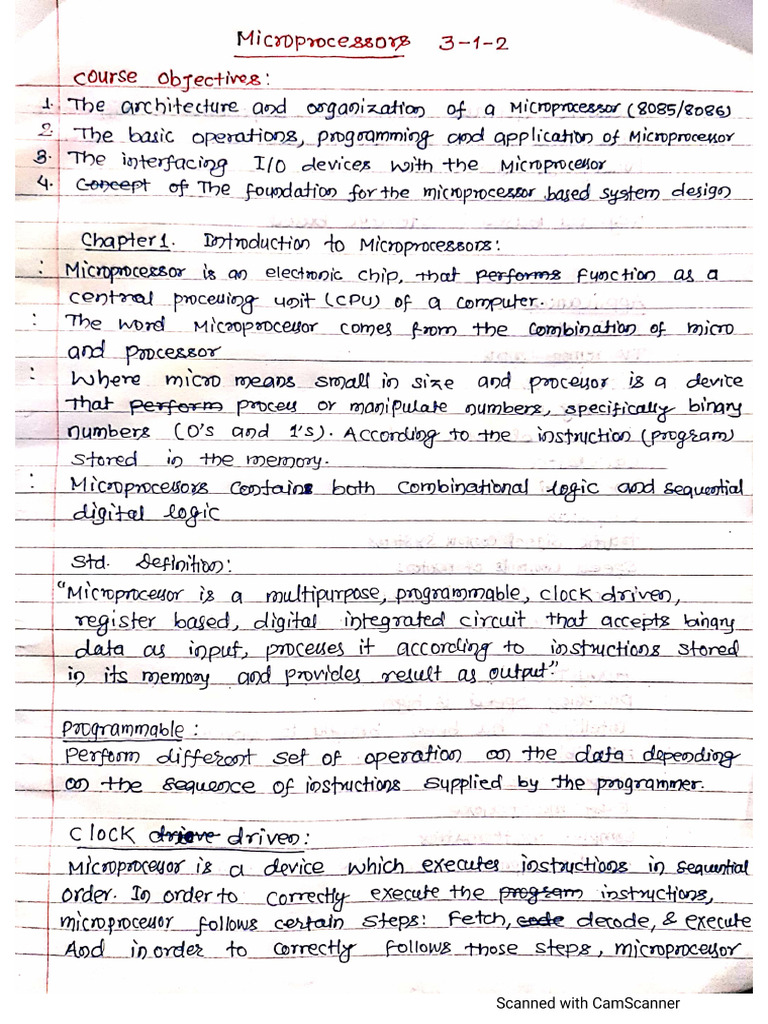 Microprocessors 3-1-2
Course Objectives:
1. The architecture and organization of a Microprocessor (8085/8086)
2 The basic operations, programming and application of Microprocessor
3. The interfacing I/O devices with the Microprocesor
4. Concept of The foundation for the microprocessor based system design
Chapter 1. Introduction to Microprocessors:
: Microprocessor is an electronic chip, that performs function as a
central procesing unit (CPU) of a computer.
: The word Microprocessor comes from the combination of micro
and processor
: Where micro means small in size and processor is a device
that perform process or manipulate numbers, specifically binary
numbers (0's and 1's). According to the instruction (program)
stored in the memory.
: Microprocessors contains both combinational logic and sequential
digital logic
Std. Definition:
"Microprocessor is a multipurpose, programmable, clock driven,
register based, digital integrated circuit that accepts binary
data as input, processes it according to instructions stored
in its memory and provides result as output."
Programmable:
Perform different set of operation on the data depending
on the sequence of instructions supplied by the programmer.
Clock drieve driven:
Microprocessor is a device which executes instructions in sequential
order. In order to correctly execute the program instructions,
microprocessor follows certain steps: Fetch, code decode, & execute
And in order to correctly follows those steps, microprocessor
Scanned with CamScanner